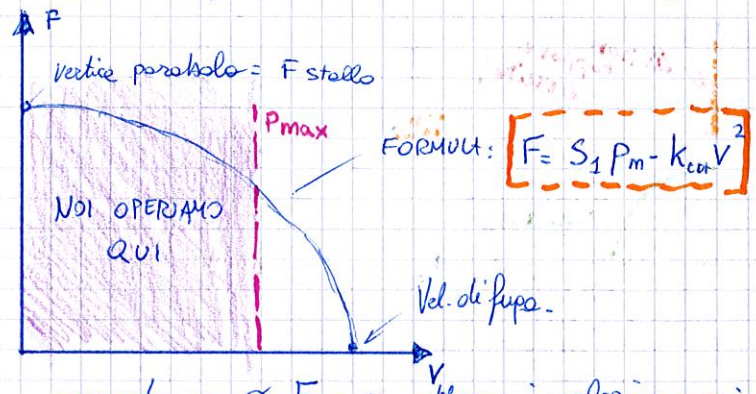 F
vertice parabola = F stallo
Pmax
FORMULA: F = S₁ Pm - kcar V²
NOI OPERIAMO
QUI
Vel. di fuga.
V